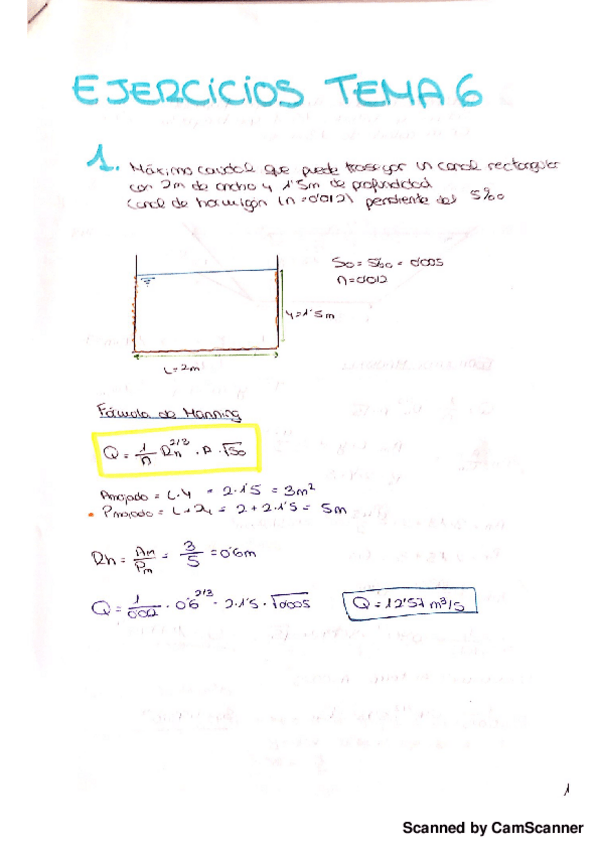 EJERCICIOS TEMA 6
1. Máximo caudal que puede trasegar un canal rectangular
con 2m de ancho y 1'5m de profundidad.
Canal de hormigón (n=0'012) pendiente del 5‰
S0 = 5‰ = 0'005
n=0'012
y=1'5m
L=2m
Fórmula de Manning
Q = 1/n Rh^2/3 · A · √S0
Amojado = L·y = 2·1'5 = 3m²
• Pmojado = L+2y = 2+2·1'5 = 5m
Rh = Am/Pm = 3/5 = 0'6m
Q = 1/0'012 · 0'6^2/3 · 2·1'5 · √0'005 Q=12'57 m³/s
1
Scanned by CamScanner